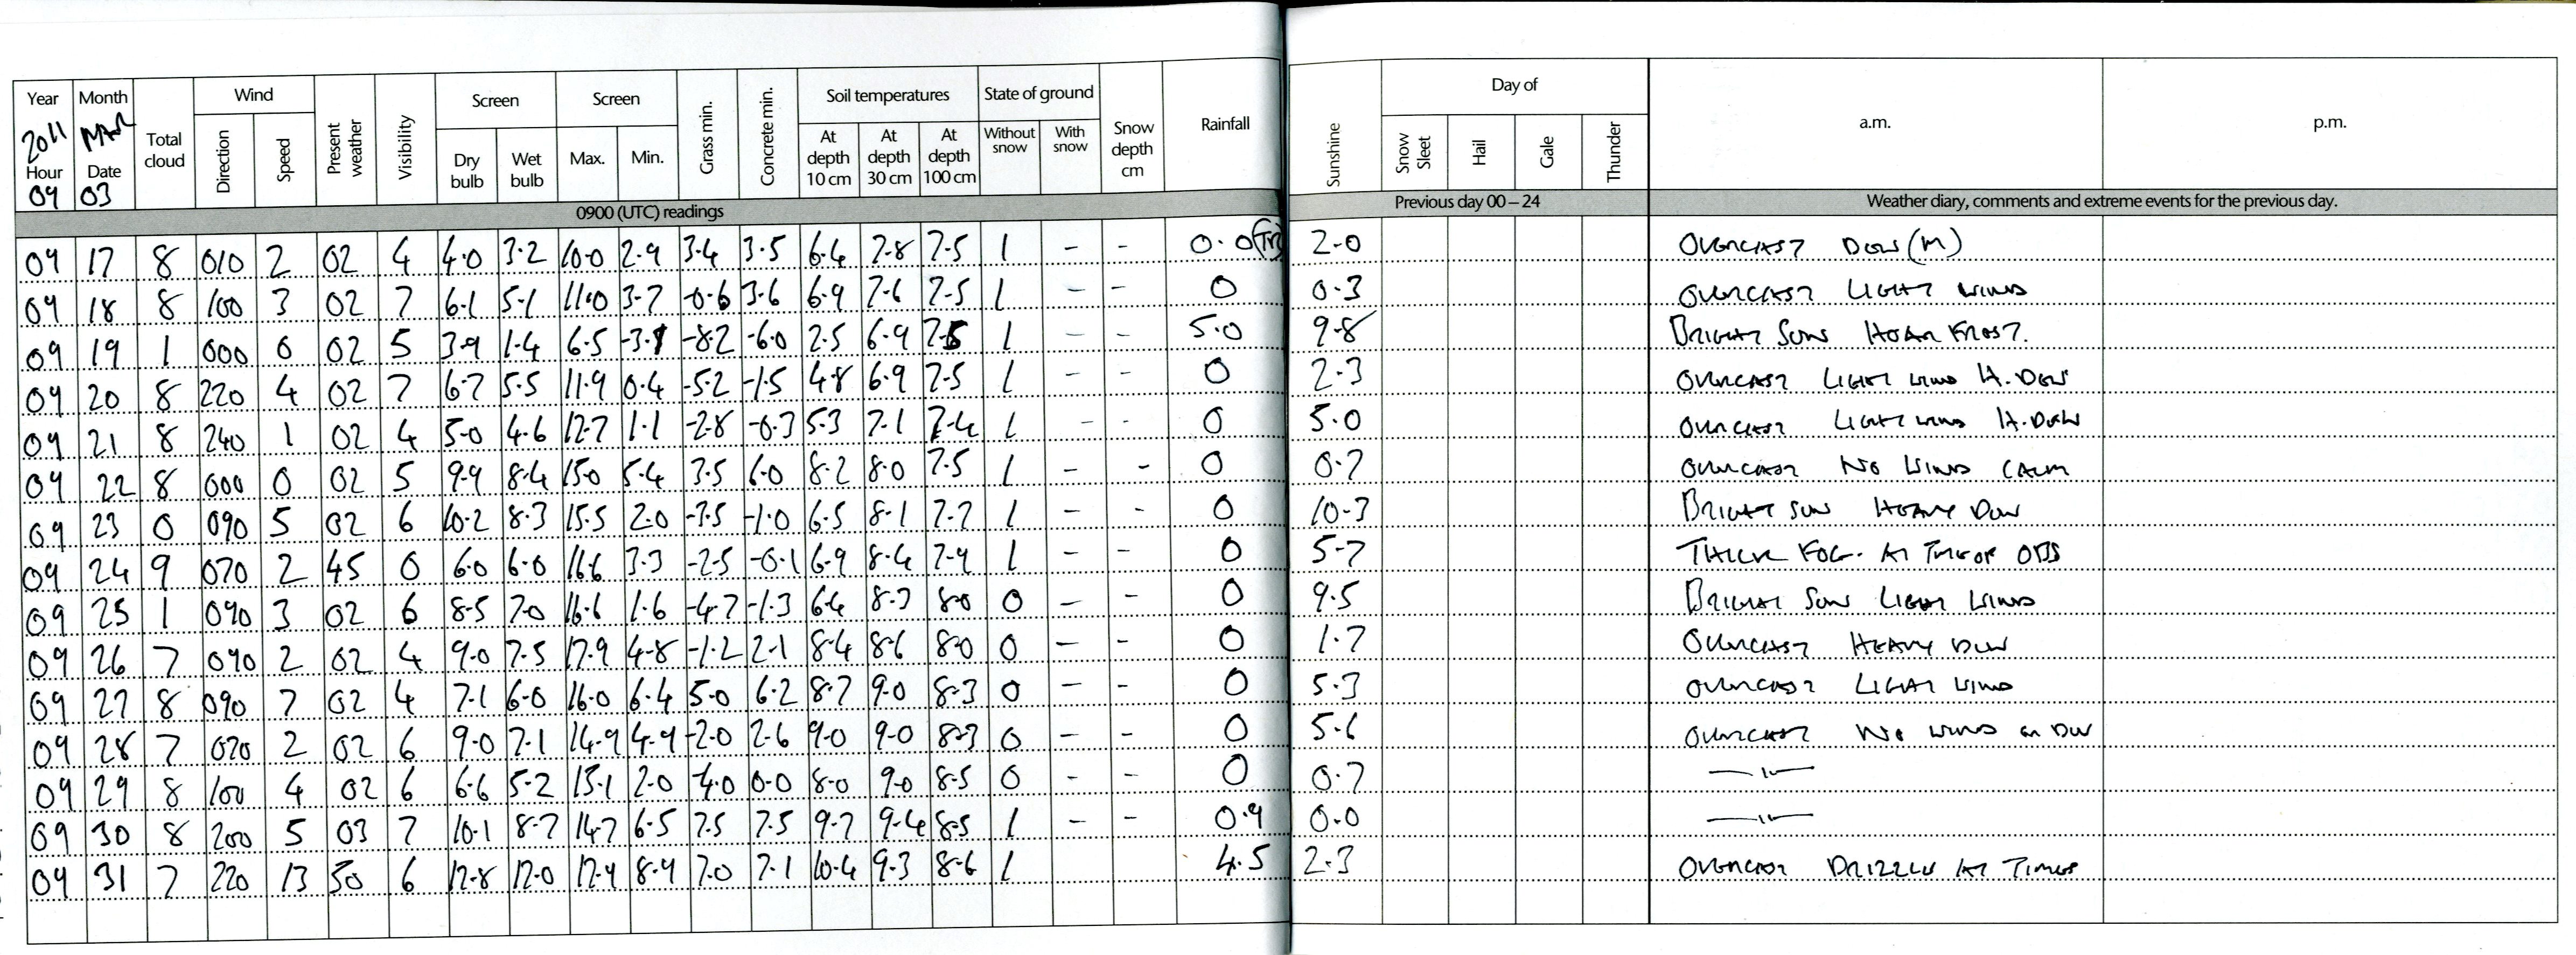 Year Month Total cloud Wind Present weather Visibility Screen Screen Grass min. Concrete min. Soil temperatures State of ground Snow depth cm Rainfall Sunshine Day of a.m. p.m.
2011 MAR Direction Speed Dry bulb Wet bulb Max. Min. At depth 10 cm At depth 30 cm At depth 100 cm Without snow With snow Snow Sleet Hail Gale Thunder
Hour Date
09 03
0900 (UTC) readings Previous day 00 – 24 Weather diary, comments and extreme events for the previous day.
09 17 8 010 2 02 4 4.0 3.2 10.0 2.9 3.4 3.5 6.4 7.8 7.5 1 - - 0.0 (Tr) 2.0 OVERCAST DEW (M)
09 18 8 100 3 02 7 6.1 5.1 11.0 3.7 -0.6 3.6 6.9 7.6 7.5 1 - - 0 0.3 OVERCAST LIGHT WIND
09 19 1 000 0 02 5 3.9 1.4 6.5 -3.1 -8.2 -6.0 2.5 6.9 7.5 1 - - 5.0 9.8 BRIGHT SUN HOAR FROST.
09 20 8 220 4 02 7 6.7 5.5 11.9 0.4 -5.2 -1.5 4.8 6.9 7.5 1 - - 0 2.3 OVERCAST LIGHT WIND H. DEW
09 21 8 240 1 02 4 5.0 4.6 12.7 1.1 -2.8 -0.3 5.3 7.1 7.4 1 - - 0 5.0 OVERCAST LIGHT WIND H. DEW
09 22 8 000 0 02 5 9.9 8.4 15.0 5.4 3.5 6.0 8.2 8.0 7.5 1 - - 0 0.7 OVERCAST NO WIND CALM
09 23 0 090 5 02 6 10.2 8.3 15.5 2.0 -3.5 -1.0 6.5 8.1 7.7 1 - - 0 10.3 BRIGHT SUN HEAVY DEW
09 24 9 070 2 45 0 6.0 6.0 16.6 3.3 -2.5 -0.1 6.9 8.4 7.9 1 - - 0 5.7 THICK FOG. AT TIME OF OBS
09 25 1 090 3 02 6 8.5 7.0 16.6 1.6 -4.7 -1.3 6.4 8.3 8.0 0 - - 0 9.5 BRIGHT SUN LIGHT WIND
09 26 7 090 2 02 4 9.0 7.5 17.9 4.8 -1.2 2.1 8.4 8.6 8.0 0 - - 0 1.7 OVERCAST HEAVY DEW
09 27 8 090 7 02 4 7.1 6.0 16.0 6.4 5.0 6.2 8.7 9.0 8.3 0 - - 0 5.3 OVERCAST LIGHT WIND
09 28 7 020 2 02 6 9.0 7.1 14.9 4.9 -2.0 2.6 9.0 9.0 8.3 0 - - 0 5.6 OVERCAST NO WIND OR DEW
09 29 8 100 4 02 6 6.6 5.2 15.1 2.0 -4.0 0.0 8.0 9.0 8.5 0 - - 0 0.7 —"—
09 30 8 200 5 03 7 10.1 8.7 14.7 6.5 7.5 7.5 9.7 9.4 8.5 1 - - 0.9 0.0 —"—
09 31 7 220 13 50 6 12.8 12.0 12.9 8.9 7.0 7.1 10.4 9.3 8.6 1 4.5 2.3 OVERCAST DRIZZLE AT TIMES